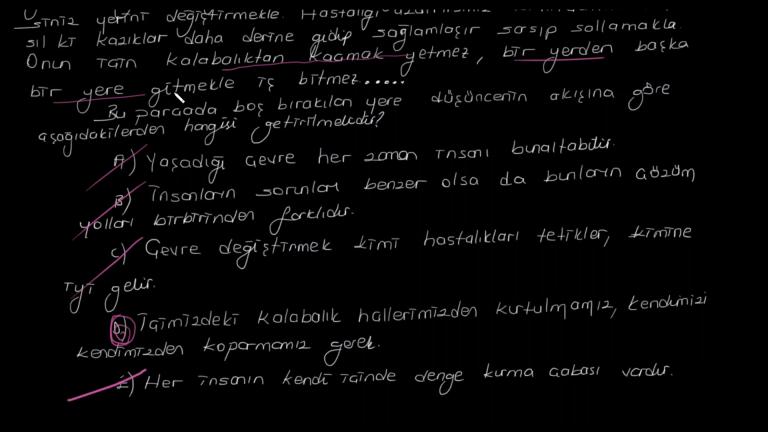 siniz yerini değiştirmekle. Hastalığı
sıl ki kazıklar daha derine gidip sağlamlaşır sarsıp sallamakla.
Onun için kalabalıktan kaçmak yetmez, bir yerden başka
bir yere gitmekle iş bitmez.....
Bu parçada boş bırakılan yere düşüncenin akışına göre
aşağıdakilerden hangisi getirilmelidir?
A) Yaşadığı çevre her zaman insanı bunaltabilir.
B) İnsanların sorunları benzer olsa da bunların çözüm
yolları birbirinden farklıdır.
C) Çevre değiştirmek kimi hastalıkları tetikler, kimine
iyi gelir.
D) İçimizdeki kalabalık hallerimizden kurtulmamız, kendimizi
kendimizden koparmamız gerek.
E) Her insanın kendi içinde denge kurma çabası vardır.